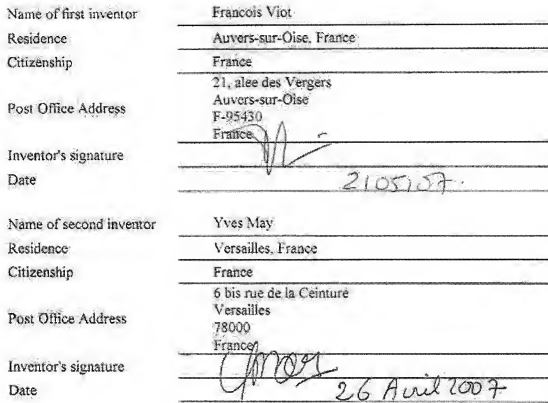 Name of first inventor Francois Viot
Residence Auvers-sur-Oise, France
Citizenship France
Post Office Address 21, alee des Vergers
Auvers-sur-Oise
F-95430
France
Inventor's signature
Date 2105107.
Name of second inventor Yves May
Residence Versailles, France
Citizenship France
Post Office Address 6 bis rue de la Ceinture
Versailles
78000
France
Inventor's signature
Date 26 Avril 2007